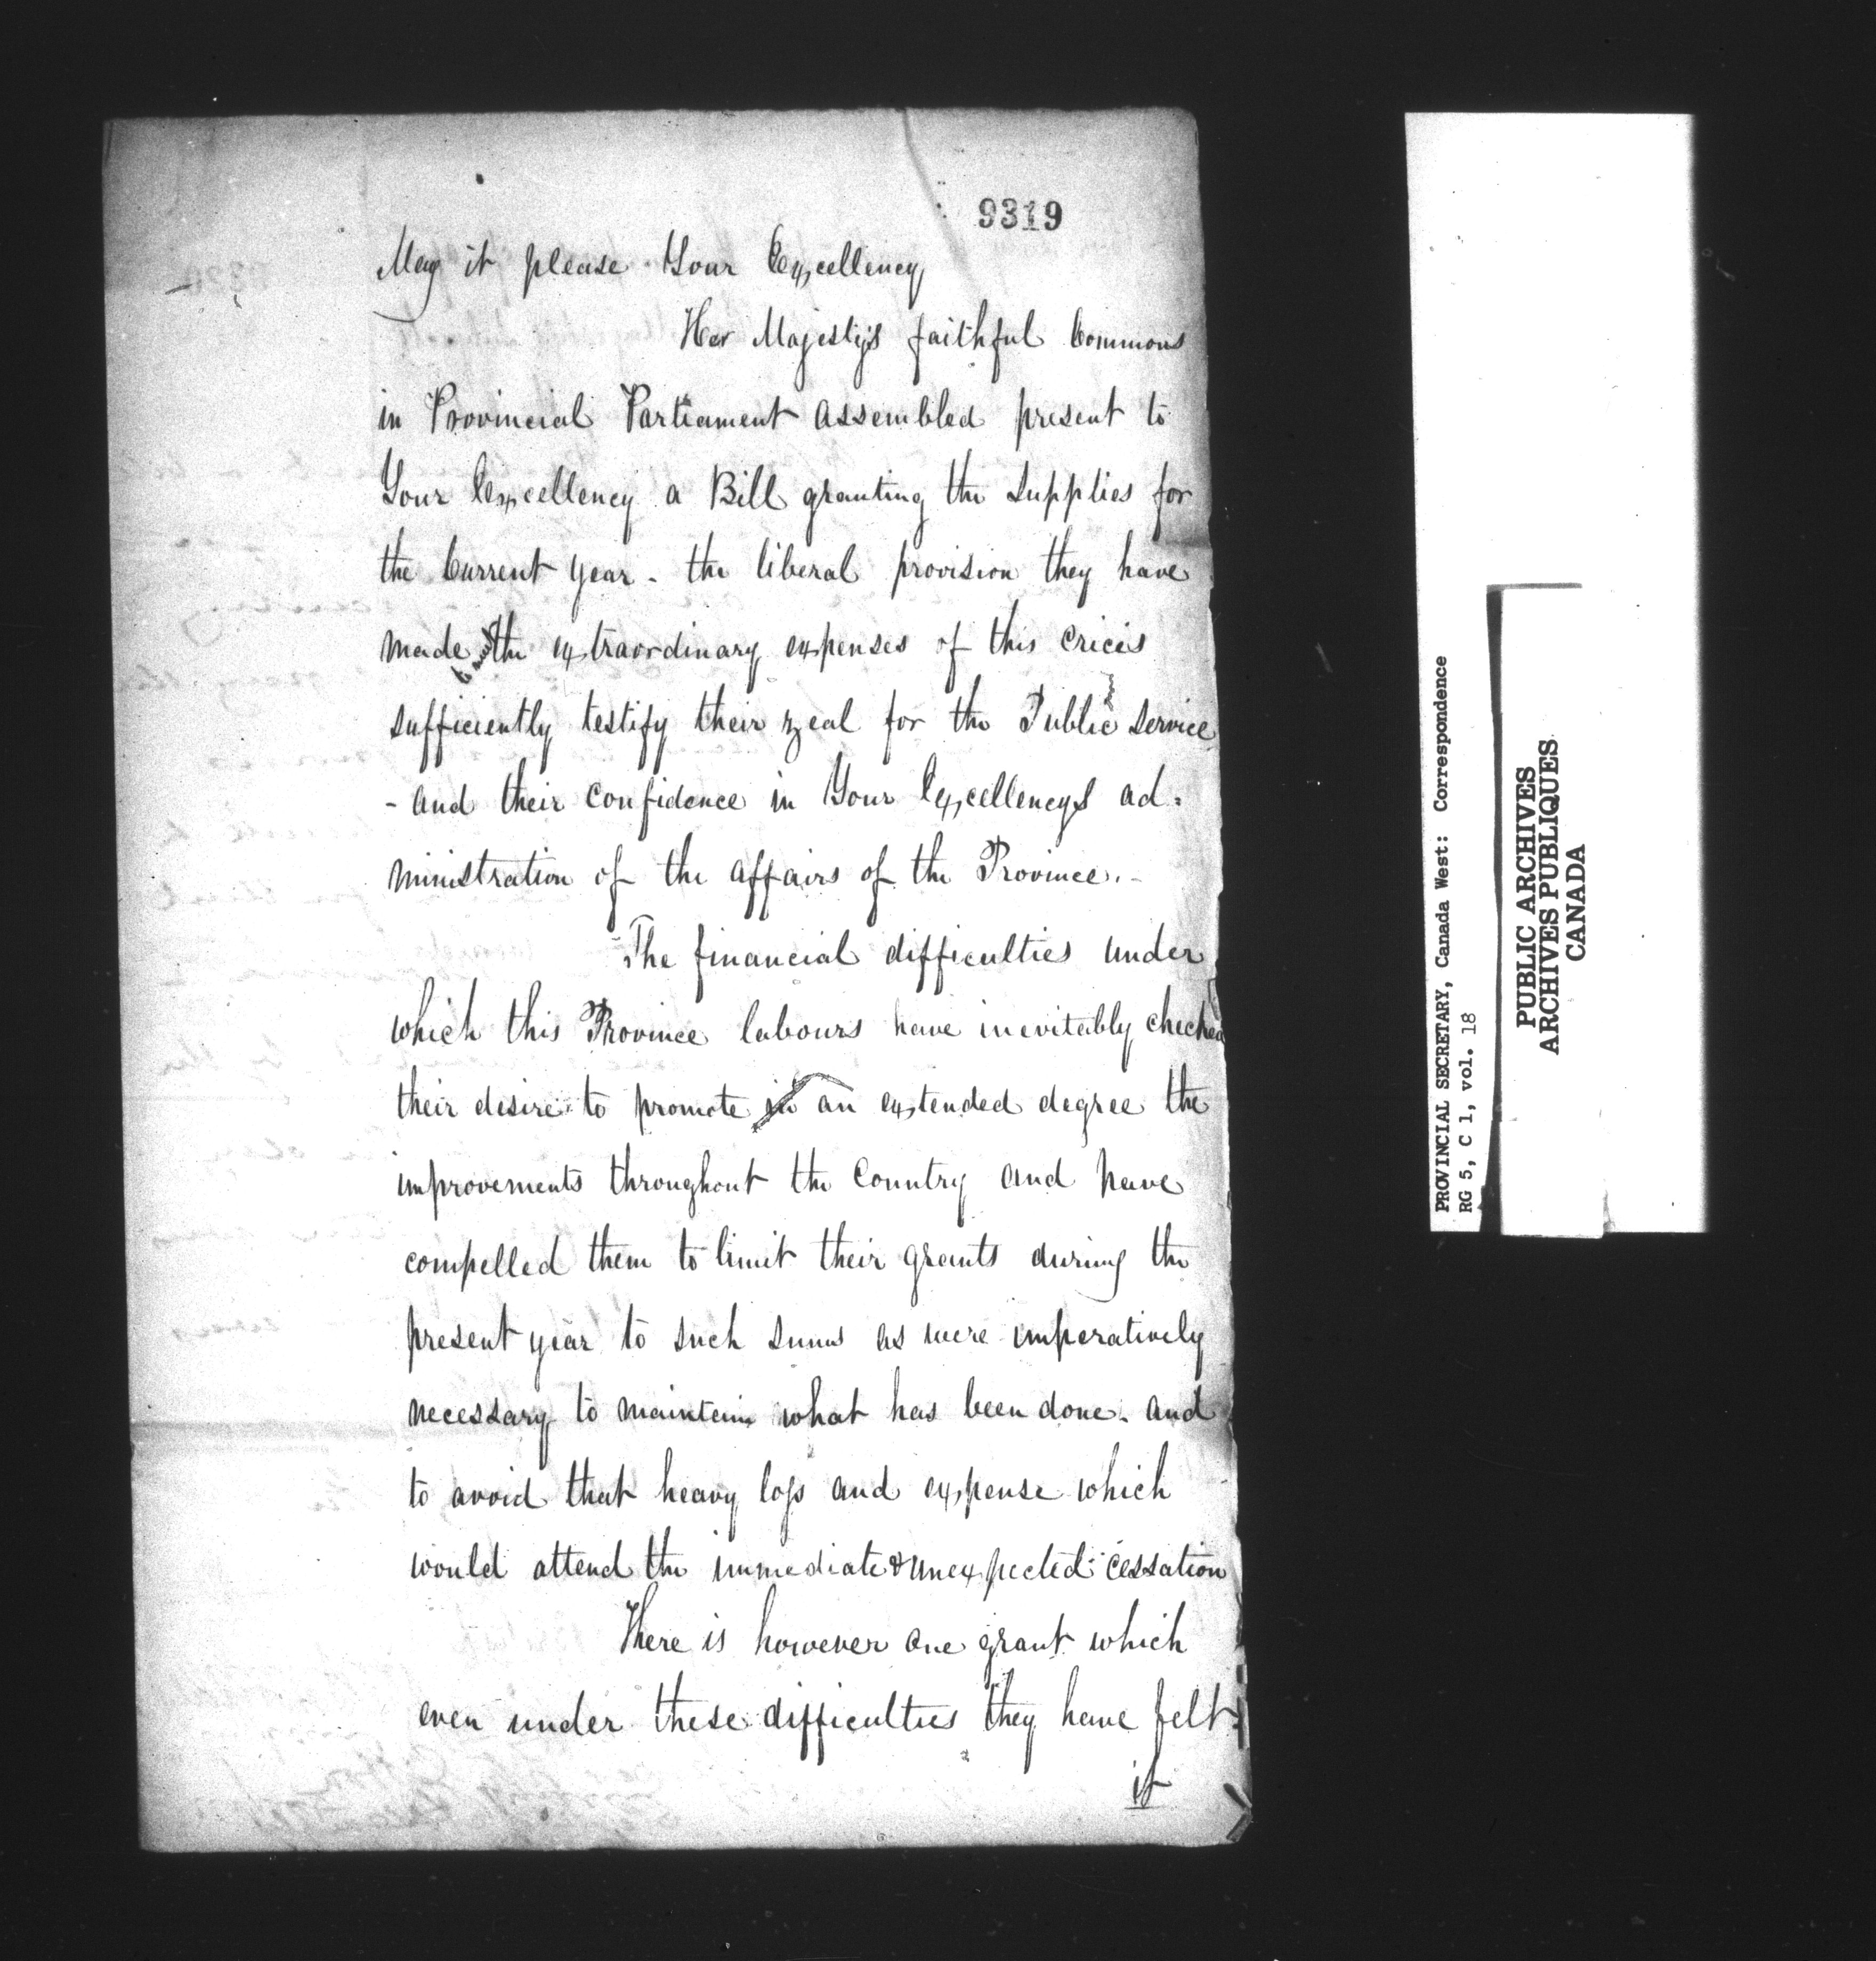 9319
May it please Your Excellency
Her Majesty's faithful Commons
in Provincial Parliament assembled present to
Your Excellency a Bill granting the Supplies for
the Current year - the liberal provision they have
made the extraordinary expenses of this Cricis
sufficiently testify their zeal for the Public Service
- and their Confidence in Your Excellencys ad-
ministration of the affairs of the Province. -
The financial difficulties under
which this Province labours have inevitably checked
their desire to promote in an extended degree the
improvements throughout the Country and have
compelled them to limit their grants during the
present year to such sums as were imperatively
necessary to maintain what has been done - and
to avoid that heavy loss and expense which
would attend the immediate & unexpected cessation
There is however one grant which
even under these difficulties they have felt
it
PROVINCIAL SECRETARY, Canada West: Correspondence
RG 5, C 1, vol. 18
PUBLIC ARCHIVES
ARCHIVES PUBLIQUES
CANADA